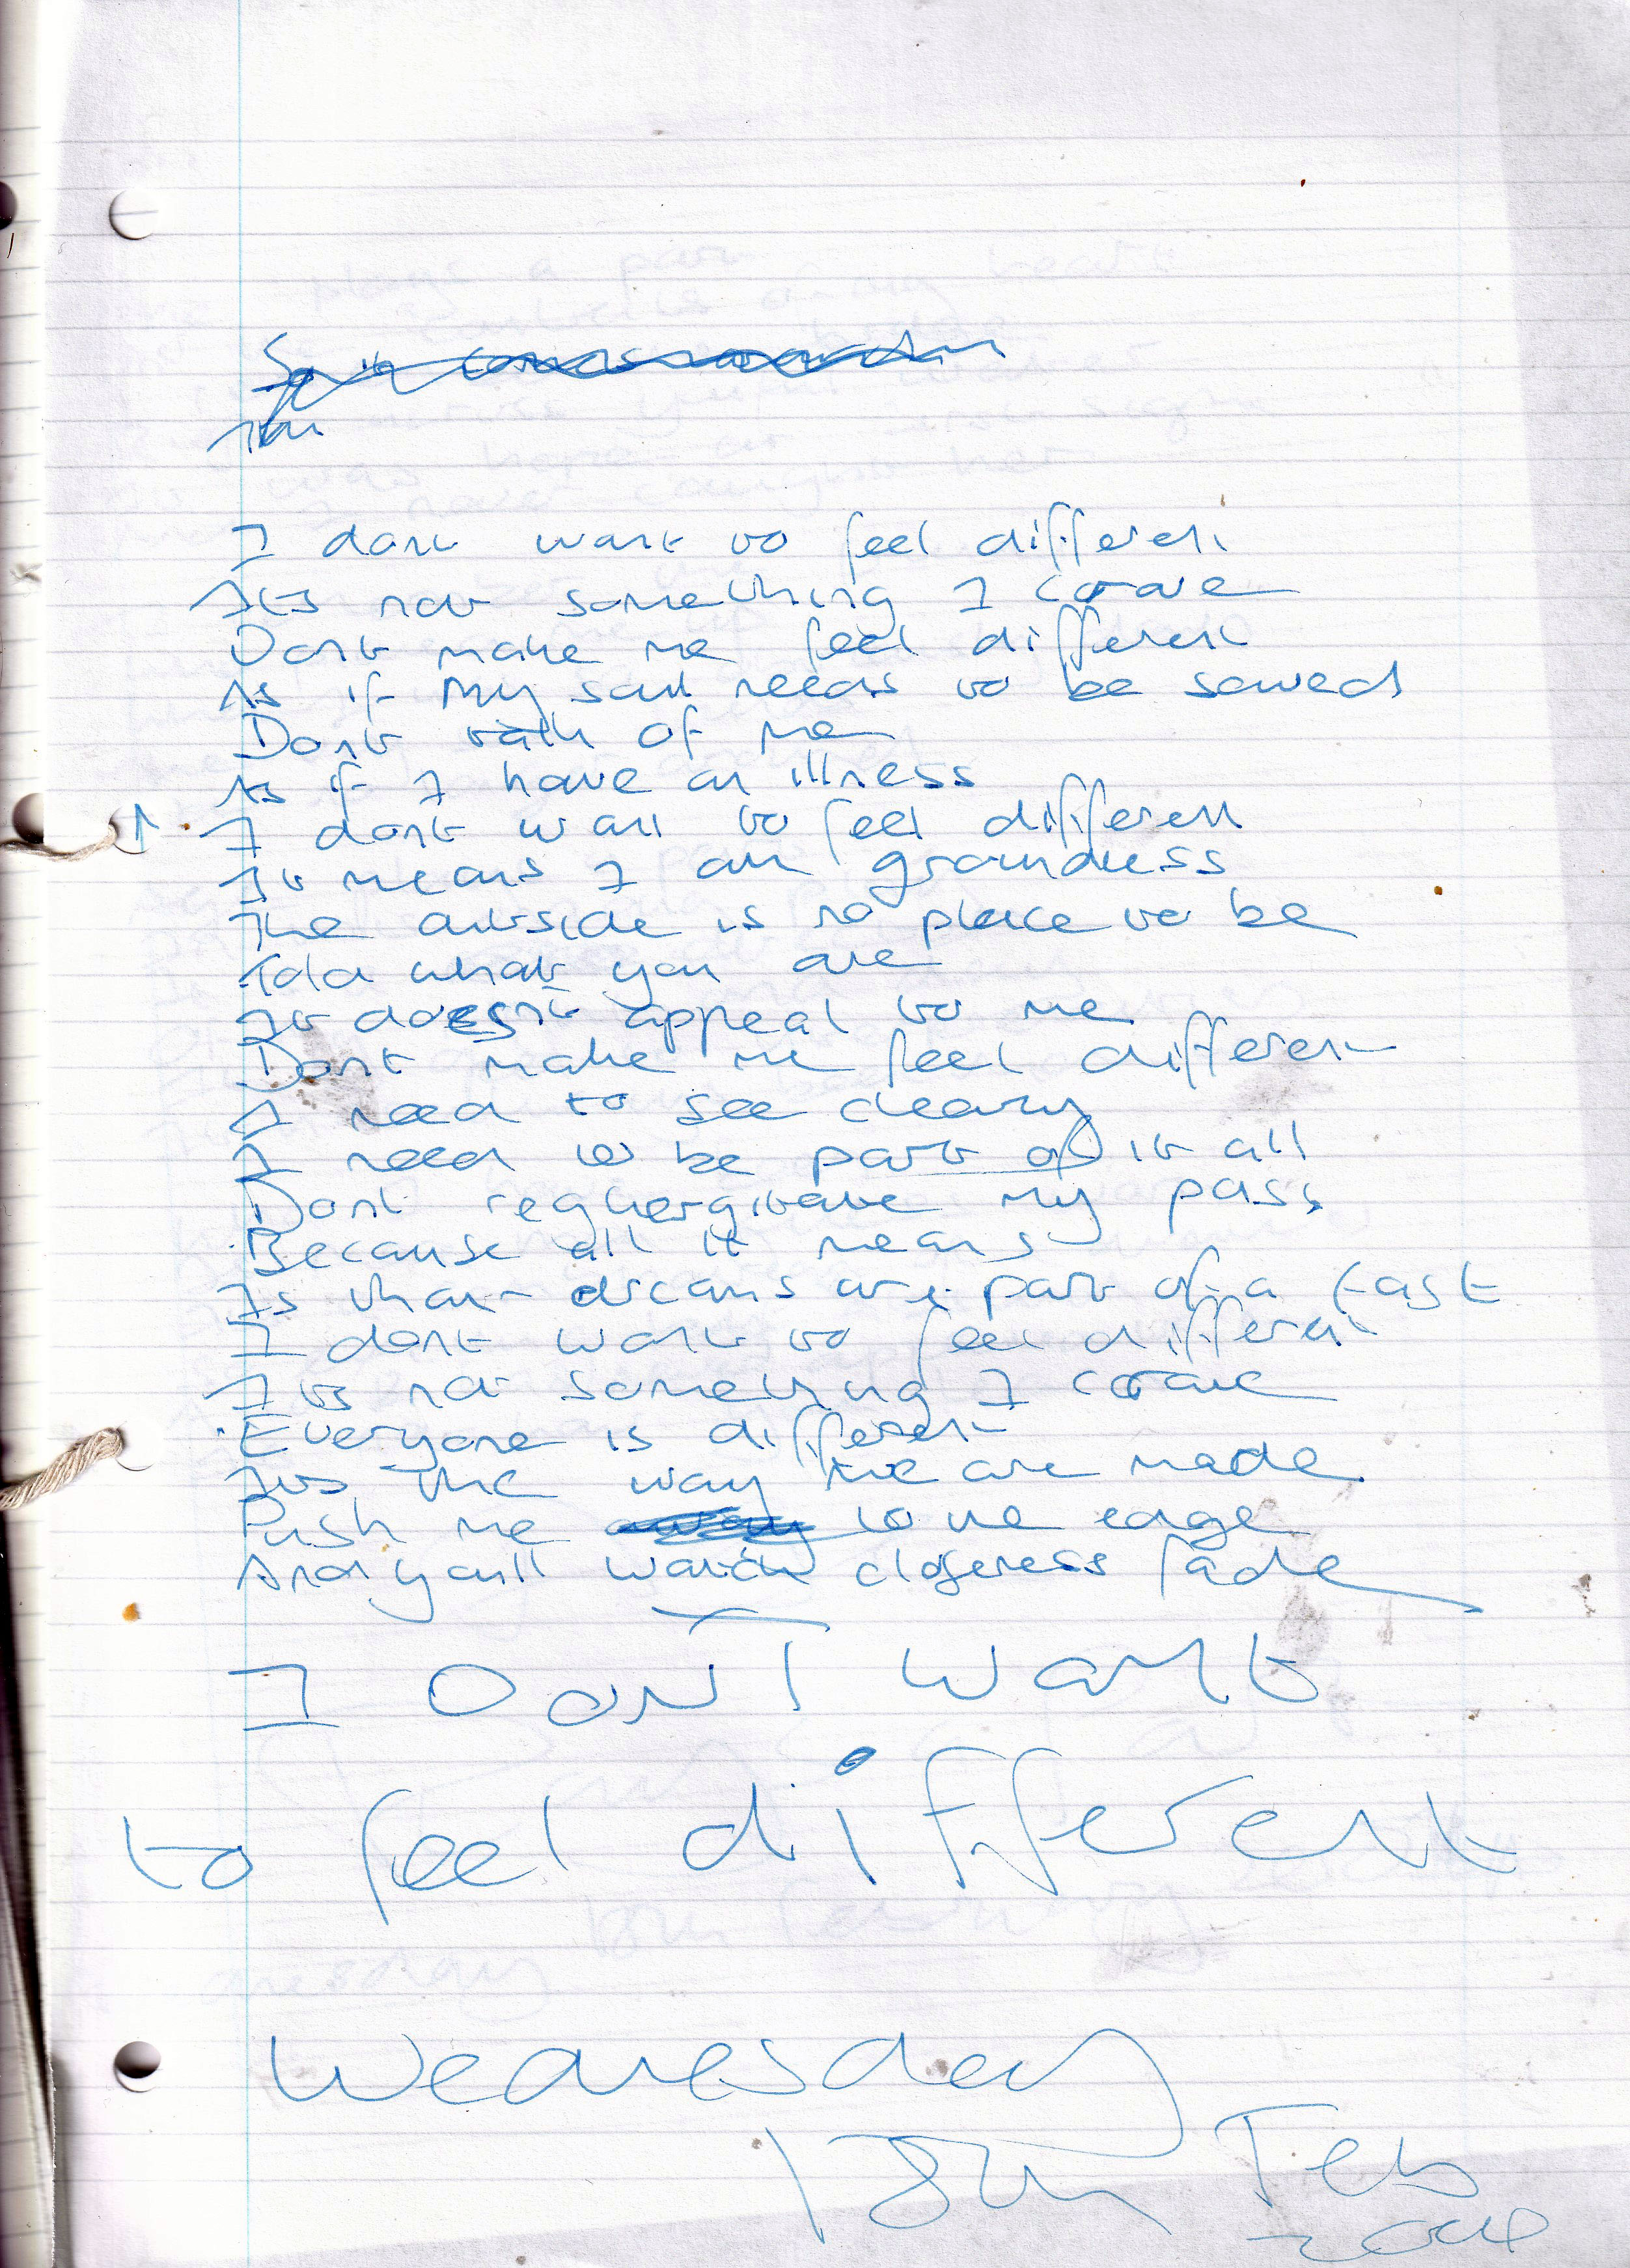 I dont want to feel different
Its not something I crave
Dont make me feel different
As if my soul needs to be saved
Dont talk of me
As if I have an illness
I dont want to feel different
It means I am groundless
The outside is no place to be
Told what you are
It doesn't appeal to me
Dont make me feel different
I need to see cleary
I need to be part of it all
Dont my past
Because all it means
Is that dreams are part of a cast
I dont want to feel different
Its not something I crave
Everyone is different
Its the way we are made
Push me to the edge
And youll watch closeness fade
I Don't want
to feel different
Wednesday
18th Feb